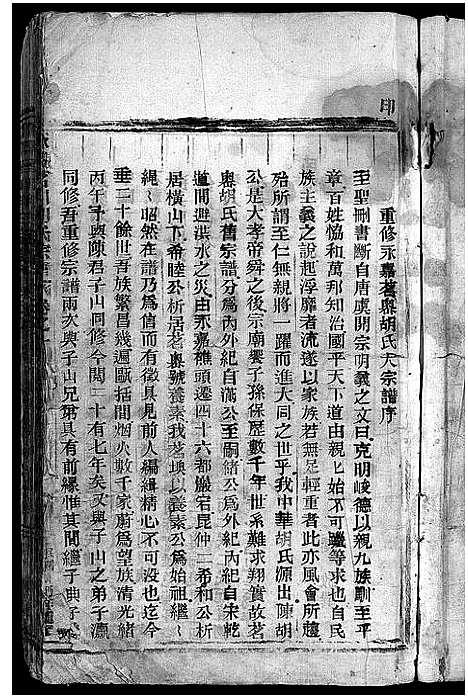 印
重修永嘉茗嶴胡氏大宗譜序
至聖刪書斷自唐虞開宗明義之文曰克明峻德以親九族馴至平
章百姓恊和萬邦知治國平天下道由親七始不可躐等求也自民
族主義之說起浮靡者流遂以家族若無足輕重者此亦風會所趨
殆所謂至仁無親將一躍而進大同之世乎我中華胡氏源出陳胡
公是大孝帝舜之後宗廟饗子孫保歷數千年世系難求翔實故茗
嶴胡氏舊宗譜分為內外紀自滿公至嗣緒公為外紀丙紀自宋乾
道間避洪水之災由永嘉樵頭遷四十六都巖宕昆仲二希和公析
居橫山下希睦公析居茗嶴號養素我茗墺以養素公為始祖繼〻
繩〻昭然在譜乃為信而有徵具見前人編緝精心不可沒也迄今
垂二十餘世吾族繁昌幾遍甌括間烟火數千家蔚為望族清光緒
丙午予與陳君子山同修今閱二十有七年矣又與子山之弟子灝
同修吾重修宗譜兩次與子山兄第具有前緣惟其間繼子典